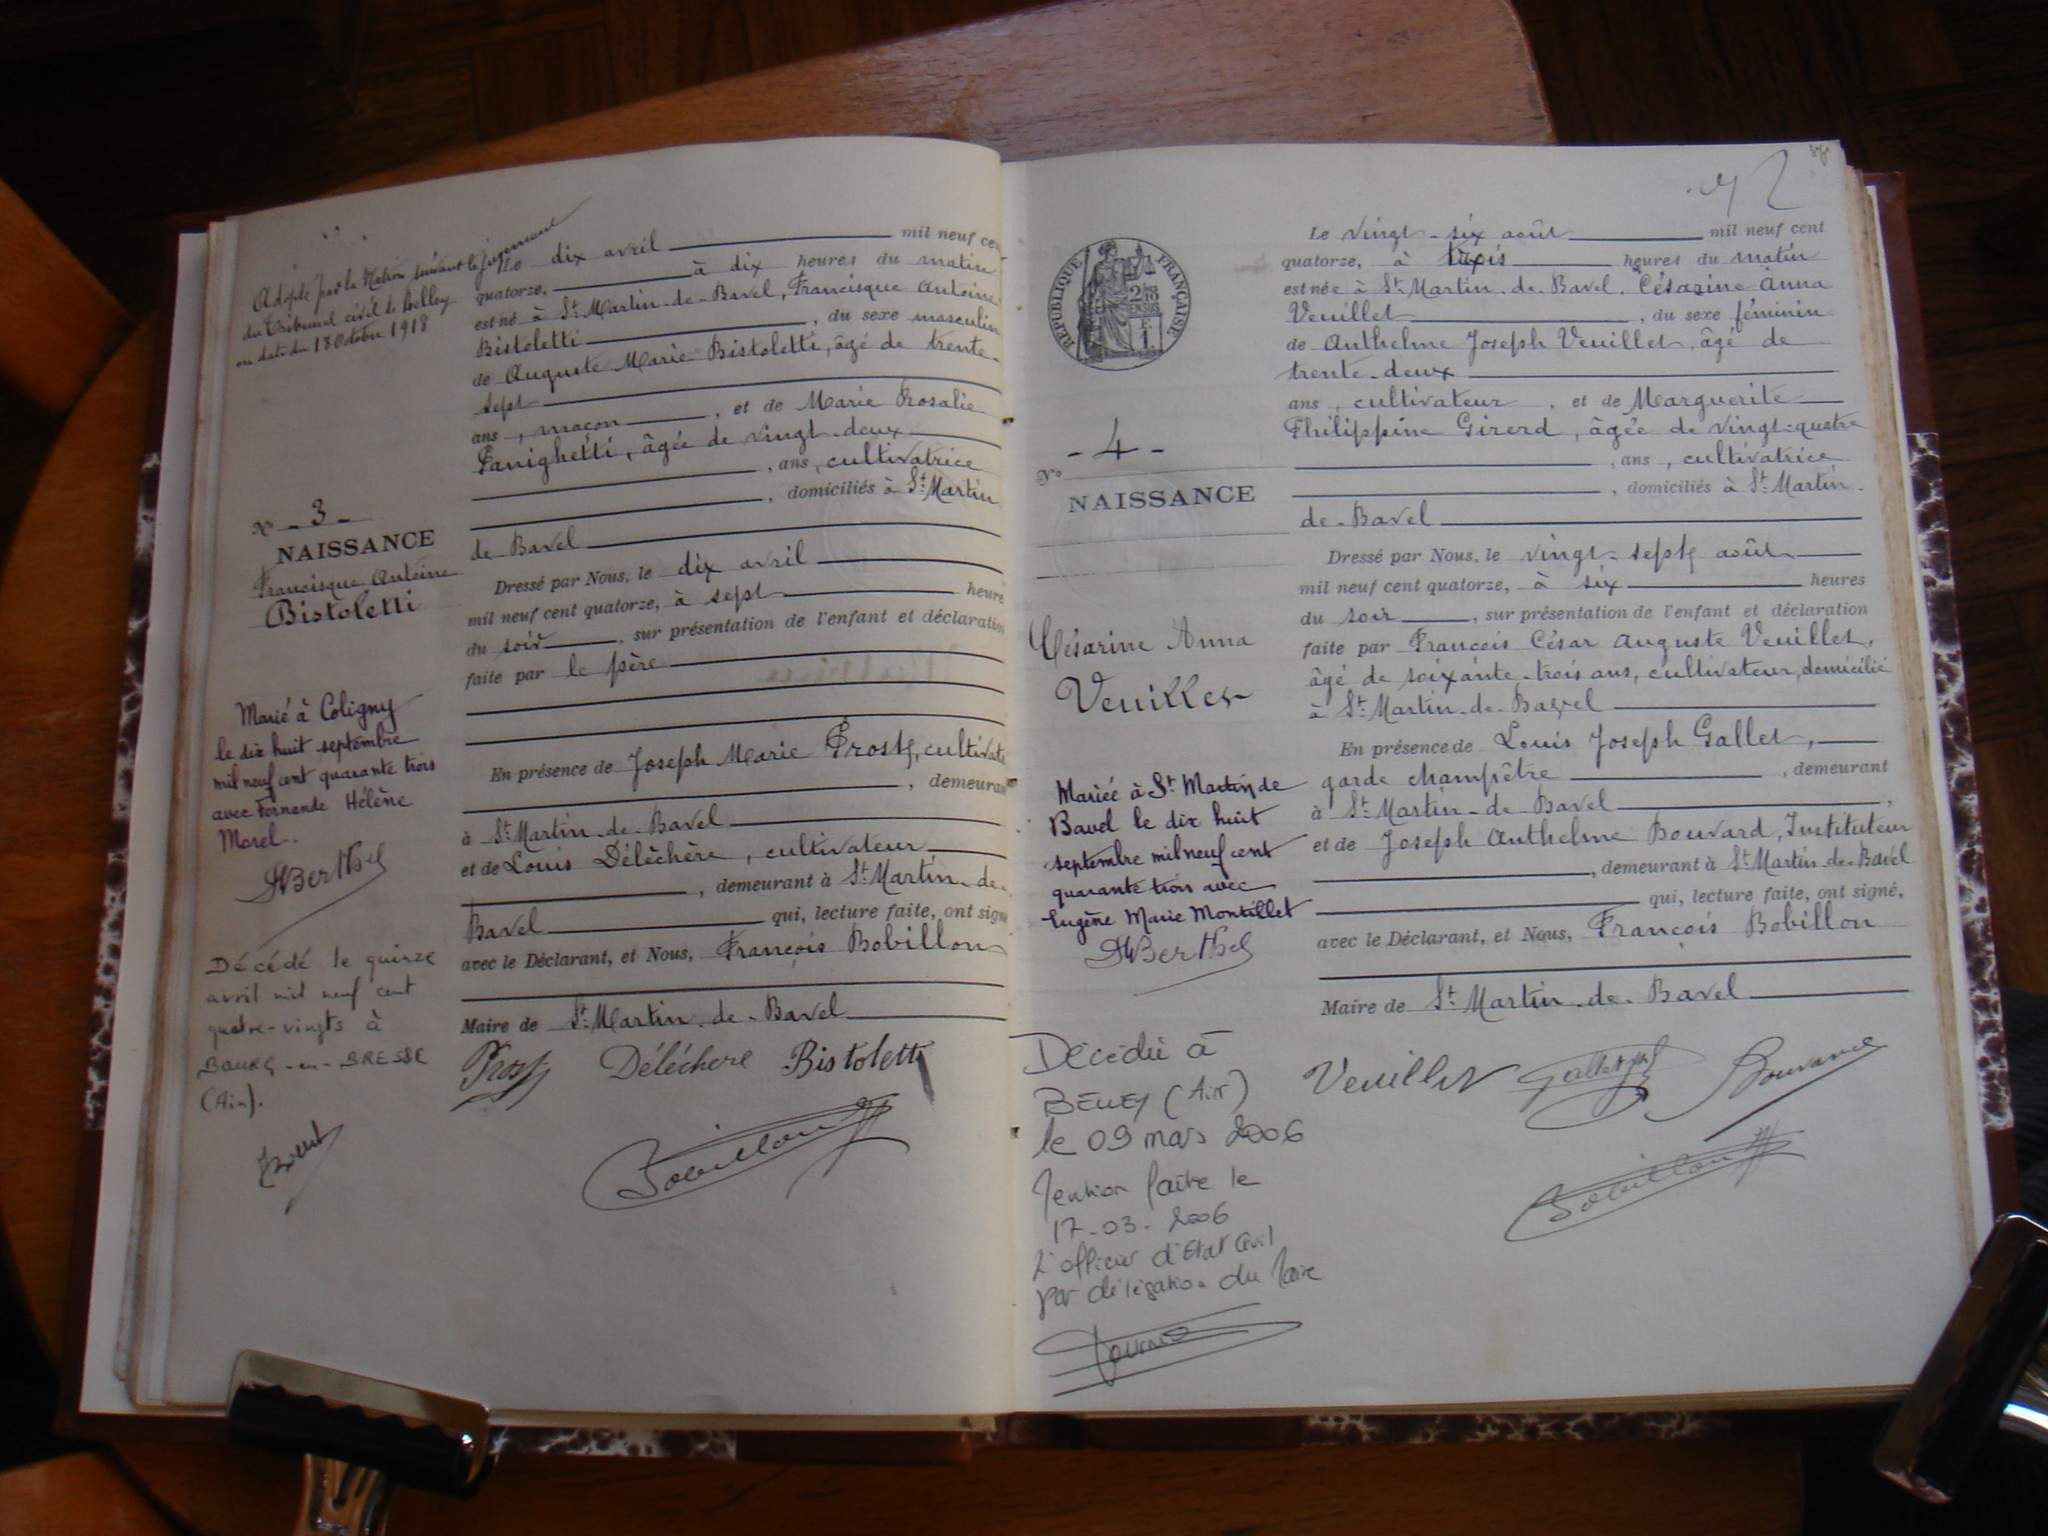 Adopté par la Nation suivant le jugement
du Tribunal civil de Belley
en date du 18 Octobre 1918
N° - 3 -
NAISSANCE
Francisque Antoine
Bistoletti
Marié à Coligny
le dix huit septembre
mil neuf cent quarante trois
avec Fernande Hélène
Morel.
Berthet
Décédé le quinze
avril mil neuf cent
quatre-vingts à
BOURG-en-BRESSE
(Ain).
Le dix avril mil neuf cent
quatorze, à dix heures du matin
est né à St Martin-de-Bavel, Francisque Antoine
Bistoletti, du sexe masculin
de Auguste Marie Bistoletti, âgé de trente-
sept
ans, maçon, et de Marie Rosalie
Panighetti, âgée de vingt-deux
, ans, cultivatrice
, domiciliés à St Martin
de-Bavel
Dressé par Nous, le dix avril
mil neuf cent quatorze, à sept heure
du soir, sur présentation de l'enfant et déclaration
faite par le père
En présence de Joseph Marie Prost, cultivate
, demeuran
à St Martin-de-Bavel
et de Louis Délèchère, cultivateur
, demeurant à St Martin-de-
Bavel qui, lecture faite, ont signé
avec le Déclarant, et Nous, François Bobillon
Maire de St Martin-de-Bavel
Prost Déléchère Bistoletti
Bobillon
RÉPUBLIQUE FRANÇAISE
N° - 4 -
NAISSANCE
Césarine Anna
Veuillet
Mariée à St Martin de
Bavel le dix huit
septembre mil neuf cent
quarante trois avec
Eugène Marie Montillet
Berthet
Décédée à
BELLEY (Ain)
le 09 mars 2006
Mention faite le
17-03-2006
L'officier d'Etat Civil
par délégation du Maire
Le vingt-six août mil neuf cent
quatorze, à trois heures du matin
est née à St Martin-de-Bavel, Césarine Anna
Veuillet, du sexe féminin
de Anthelme Joseph Veuillet, âgé de
trente-deux
ans, cultivateur, et de Marguerite
Philippine Girerd, âgée de vingt-quatre
, ans, cultivatrice
, domiciliés à St Martin-
de-Bavel
Dressé par Nous, le vingt-sept août
mil neuf cent quatorze, à six heures
du soir, sur présentation de l'enfant et déclaration
faite par François César Auguste Veuillet,
âgé de soixante-trois ans, cultivateur, domicilié
à St Martin-de-Bavel
En présence de Louis Joseph Gallet,
garde champêtre, demeurant
à St Martin-de-Bavel,
et de Joseph Anthelme Bouvard, Instituteur
, demeurant à St Martin-de-Bavel
qui, lecture faite, ont signé,
avec le Déclarant, et Nous, François Bobillon
Maire de St Martin-de-Bavel
Veuillet Gallet Bouvard
Bobillon